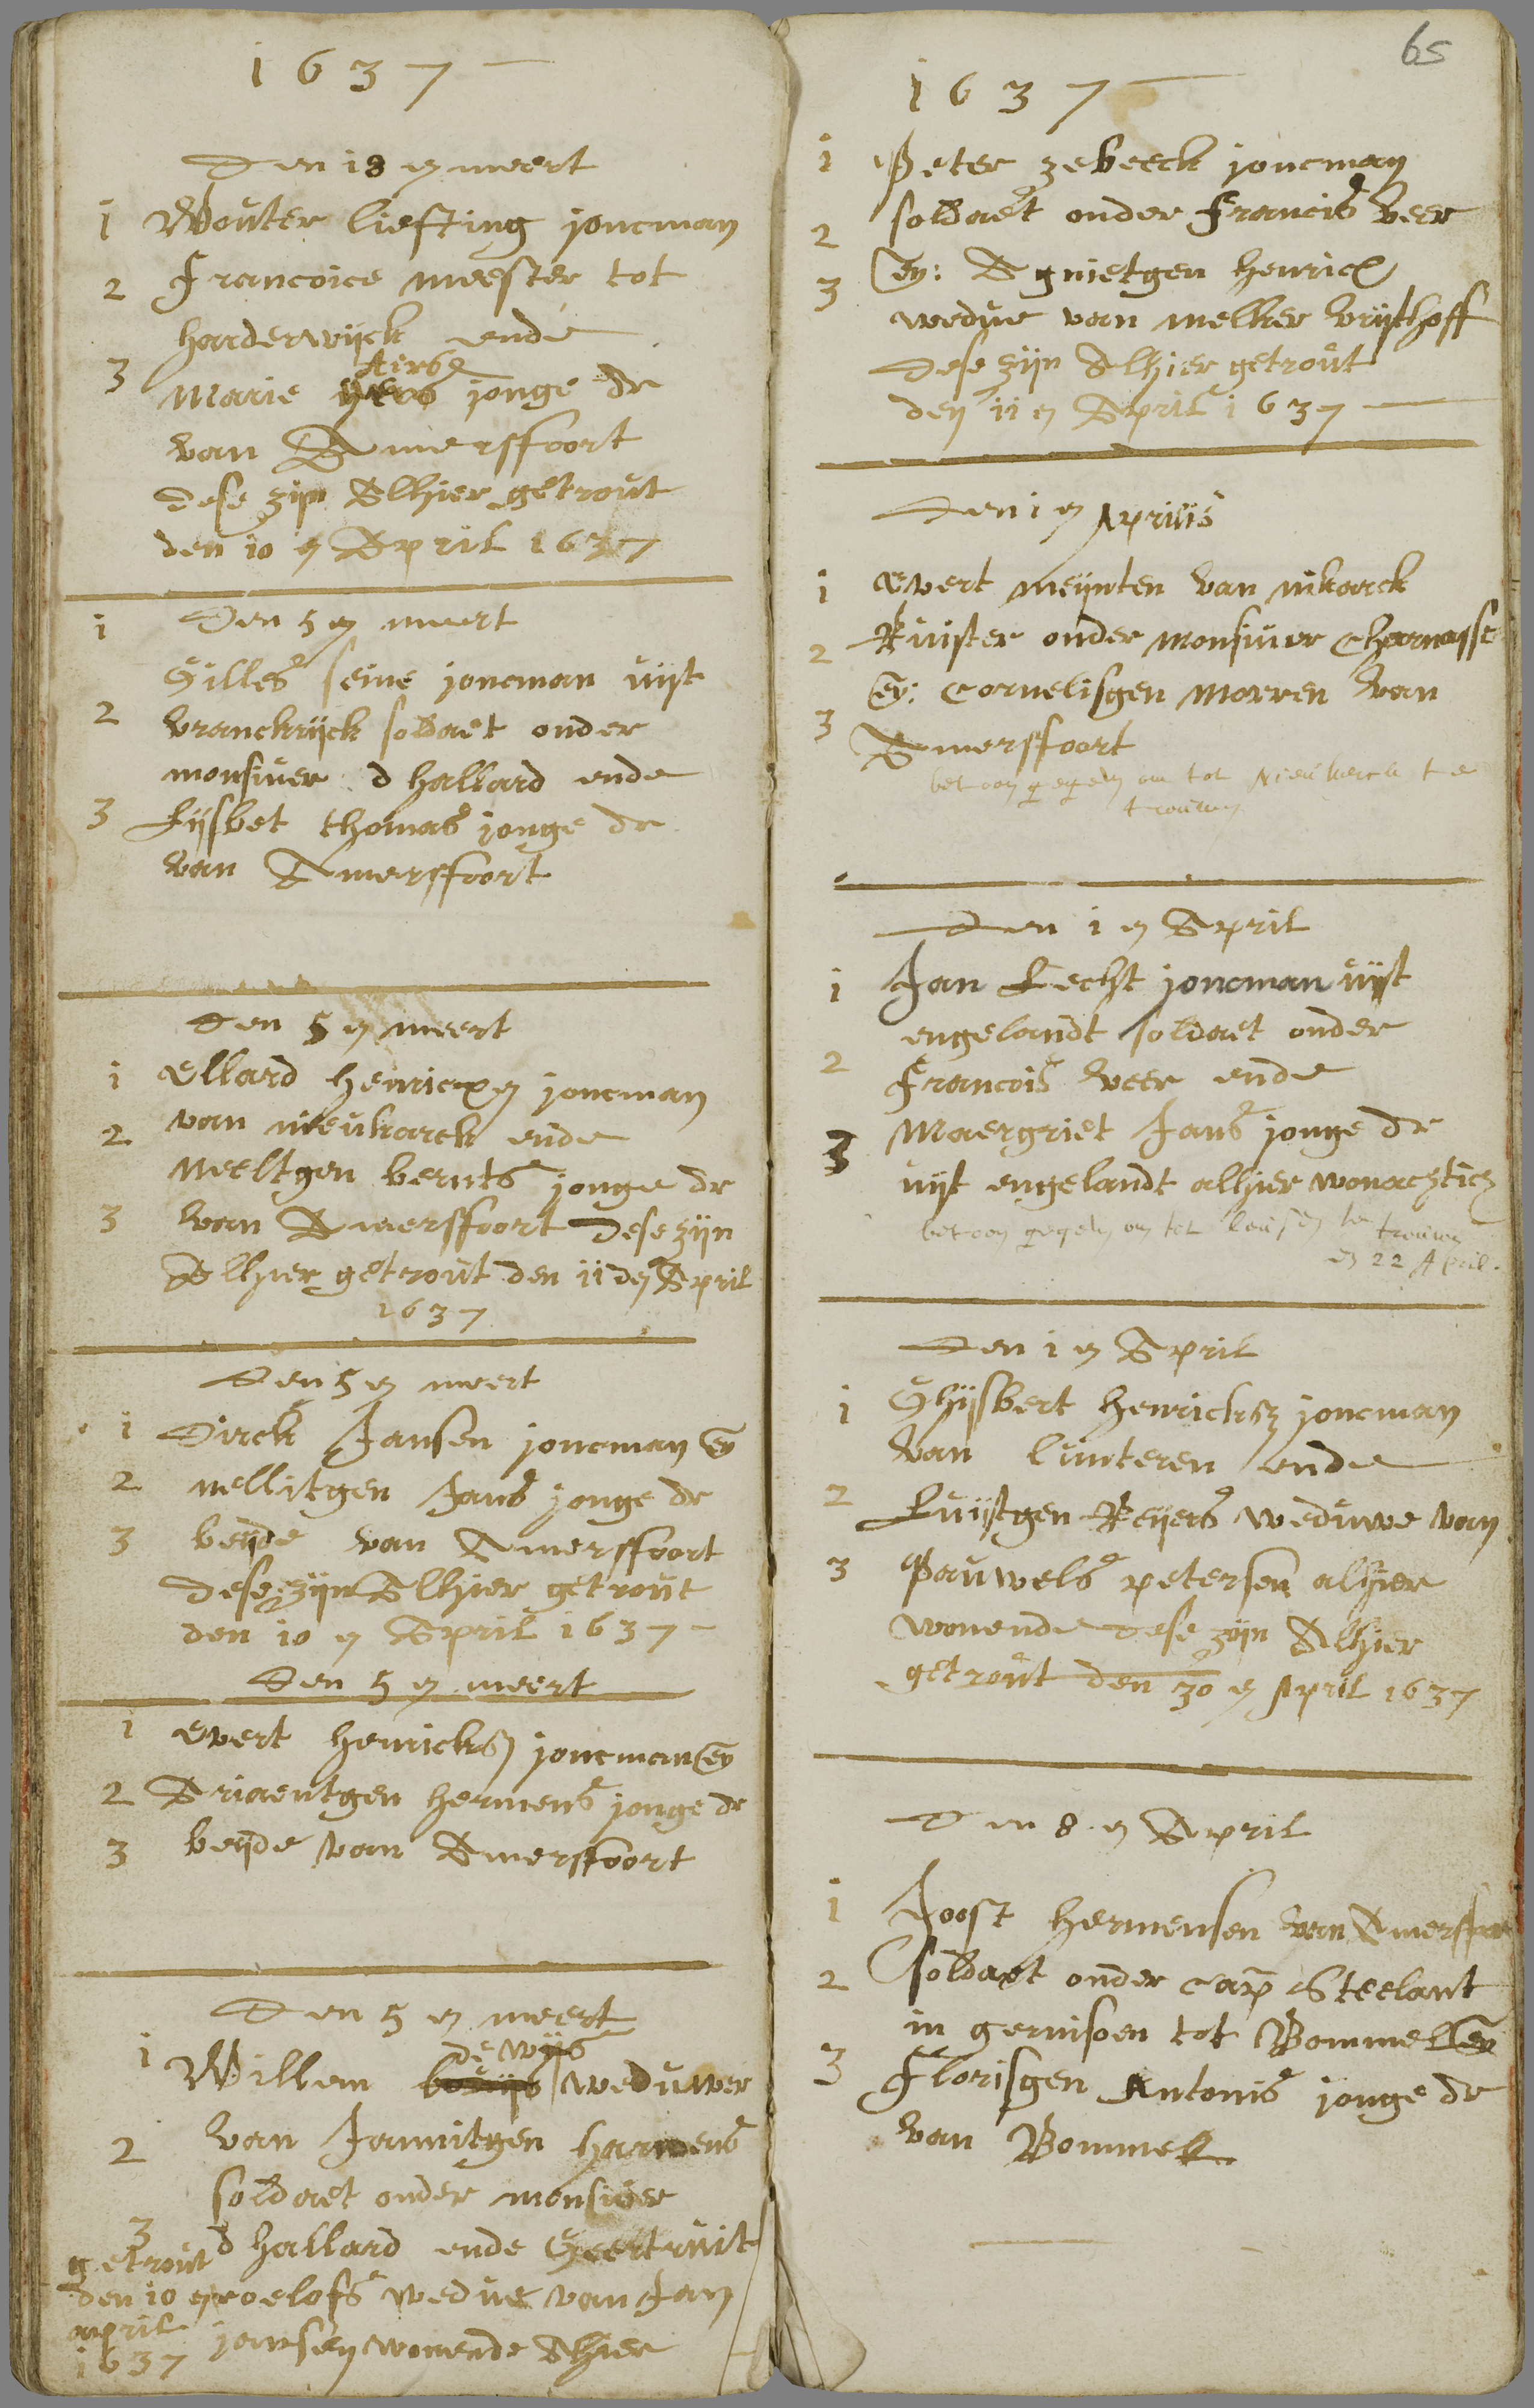 1637
Den 18 en meert
1 Wouter liefting joncman
2 Francoice meester tot
harderwijck ende
Airs
3 Marie jonge dr
van Amersffoort
dese zijn Alhier getrout
den 10 en April 1637
Den 5 en meert
1 Gilles seine joncman uijt
2 vranckrijck soldaet onder
monsiuer d hallard ende
3 Lijsbet thomas jonge dr
van Amersffoort
Den 5 en meert
1 Ellard henricxen joncman
2 van nieukarck ende
Neeltgen bernts jonge dr
3 van Amersffoort dese zijn
Alhier getrout den 11 den April
1637
Den 5 en meert
1 Dirck Jansen joncman en
2 nellitgen Jans jonge dr
3 beijde van Amersffoort
dese zijn Alhier getrout
den 10 en April 1637
Den 5 en meert
1 Evert henricksen joncman en
2 Ariaentgen hermens jonge dr
3 beijde van Amersfoort
Den 5 en meert
de wijs
1 Willem weduwer
2 van Jannitgen harmens
soldaet onder monsiuer
3 d hallard ende Geertruit
getrout
den 10 en roelofs wedue van Jan
april
jansen wonende Alhier
1637
65
1637
1 Peter zebeeck joncman
2 soldaet onder Francis veer
3 en: Agnietgen henricx
wedue van melker vrijthoff
dese zijn Alhier getrout
den 11 en April 1637
Den 1 en Aprilis
1 Evert meijnten van nikarck
2 Ruijter onder monsiuer Charnasse
en: Cornelisgen morren van
3 Amersffoort
betoon gegeven om tot Nieukerck te
trouwen
Den 1 en April
1 Jan Lecht joncman uijt
engelandt soldaet onder
2 Francois veer ende
3 Maergriet Jans jonge dr
uijt engelandt alhier wonachtich
betoon gegeven om tot leusden te trouwen
den 22 April.
Den 1 en April
1 Ghijsbert henricksz joncman
van lunteren ende
2 Luijtgen Reijers weduwe van
3 Pauwels petersen alhier
wonende dese zijn Alhier
getrout den 30 en April 1637
Den 8 en April
1 Joost hermensen van Amersfoor
2 soldaet onder cap Steelant
in gernisoen tot Bommel en
3 Florisgen Antonis jonge dr
van Bommel